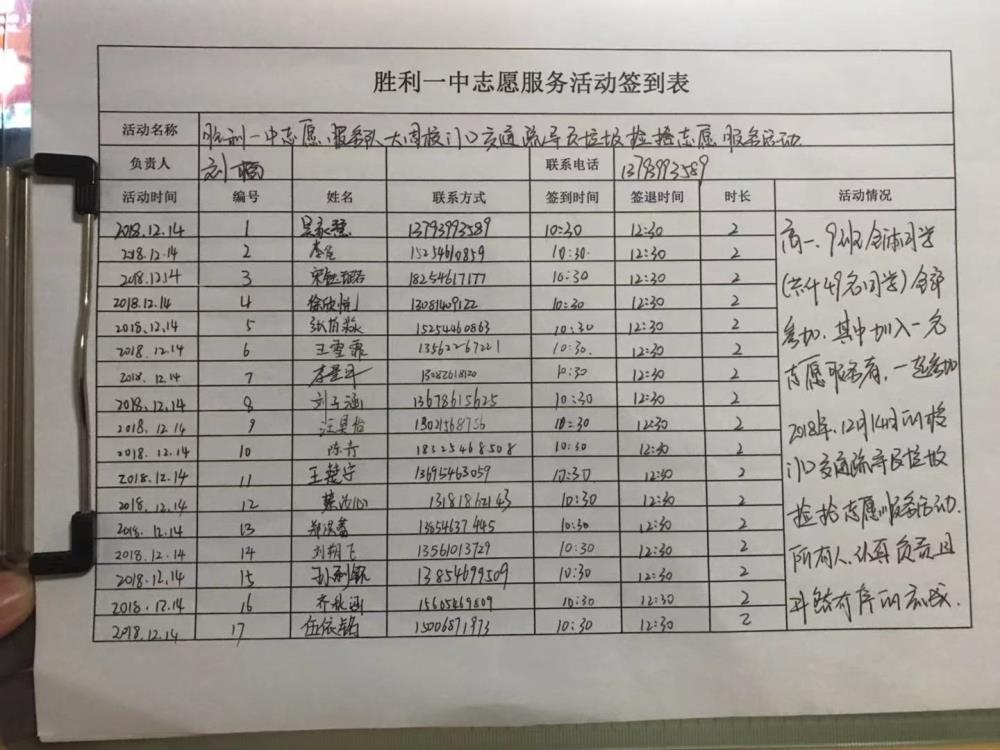 胜利一中志愿服务活动签到表
活动名称 胜利一中志愿服务队大周校门口交通疏导及垃圾捡拾志愿服务活动
负责人 刘 联系电话 13793993589
活动时间 编号 姓名 联系方式 签到时间 签退时间 时长 活动情况
2018.12.14 1 13793993589 10:30 12:30 2
2018.12.14 2 15254610859 10:30 12:30 2
2018.12.14 3 18254617177 10:30 12:30 2
2018.12.14 4 徐欣悦 13081409122 10:30 12:30 2
2018.12.14 5 15254460863 10:30 12:30 2
2018.12.14 6 王雪霏 13562267221 10:30 12:30 2
2018.12.14 7 10:30 12:30 2
2018.12.14 8 刘子涵 13678615625 10:30 12:30 2
2018.12.14 9 汪昊怡 13021568756 10:30 12:30 2
2018.12.14 10 陈卉 18525468508 10:30 12:30 2
2018.12.14 11 王楚宁 13695463059 10:30 12:30 2
2018.12.14 12 13181862143 10:30 12:30 2
2018.12.14 13 13854637445 10:30 12:30 2
2018.12.14 14 刘翔飞 13561013729 10:30 12:30 2
2018.12.14 15 13854699509 10:30 12:30 2
2018.12.14 16 齐秋涵 15605469809 10:30 12:30 2
2018.12.14 17 任依铭 15006871973 10:30 12:30 2
高一、9班全体同学
(共计49名同学)全部
参加.其中加入一名
志愿服务者,一起参加
2018年.12月14日的校
门口交通疏导及垃圾
捡拾志愿服务活动.
所有人认真负责且
井然有序的完成.